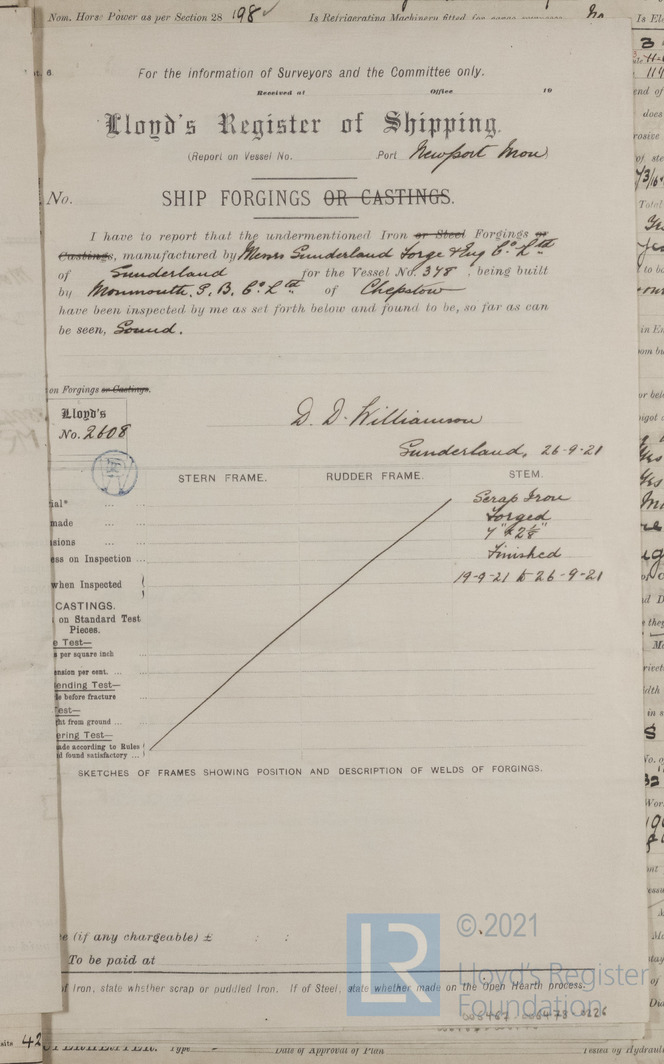 Nom. Horse Power as per Section 28 198
Is Refrigerating Machinery fitted for cargo purposes No
For the information of Surveyors and the Committee only.
Received at Office 19
Lloyd's Register of Shipping.
(Report on Vessel No. Port Newport Mon)
No. SHIP FORGINGS OR CASTINGS.
I have to report that the undermentioned Iron or Steel Forgings or
Castings, manufactured by Messrs Sunderland Forge & Eng Co. Ltd
of Sunderland for the Vessel No. 378, being built
by Monmouth. S. B. Co. Ltd of Chepstow
have been inspected by me as set forth below and found to be, so far as can
be seen, Sound.
on Forgings or Castings.
Lloyd's
No. 2608
D. D. Williamson
Sunderland, 26-9-21
STERN FRAME. RUDDER FRAME. STEM.
ial* ... ... Scrap Iron
made ... ... Forged
sions ... ... 7" x 2 1/8"
ess on Inspection ... Finished
when Inspected 19-9-21 to 26-9-21
CASTINGS.
on Standard Test
Pieces.
e Test—
s per square inch ...
ension per cent. ...
ending Test—
s before fracture
Test—
ht from ground ...
ering Test—
ade according to Rules
d found satisfactory ...
SKETCHES OF FRAMES SHOWING POSITION AND DESCRIPTION OF WELDS OF FORGINGS.
e (if any chargeable) £ : :
To be paid at
f Iron, state whether scrap or puddled Iron. If of Steel, state whether made on the Open Hearth process.
LR
©2021
Lloyd's Register
Foundation
Date of Approval of Plan